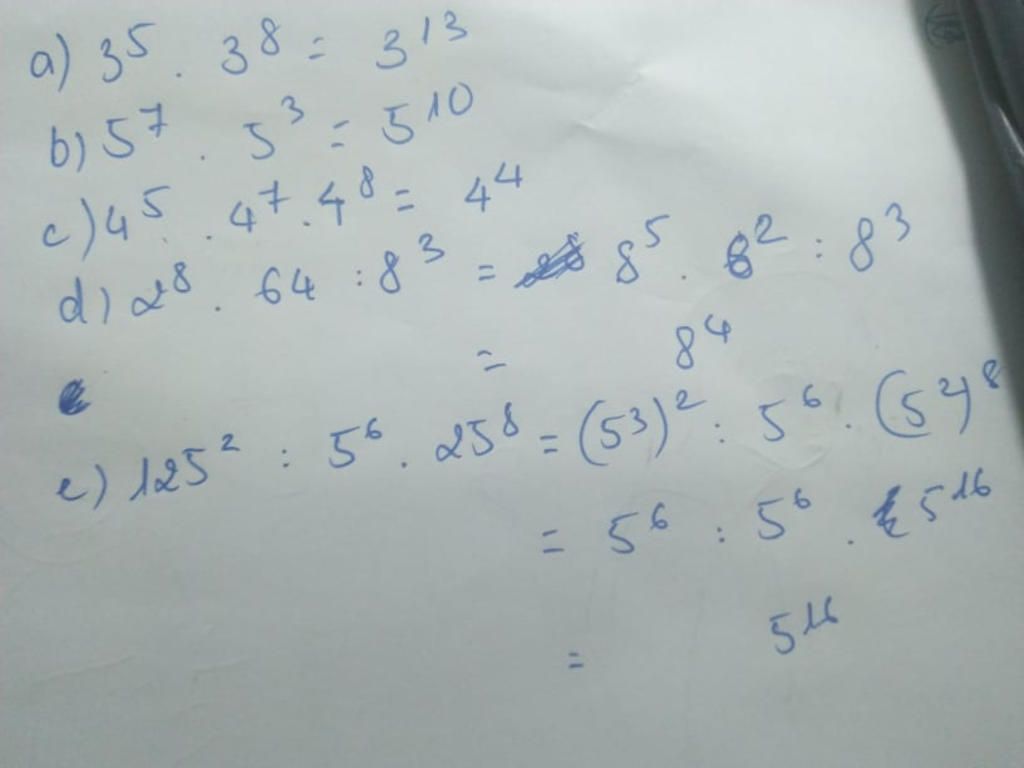 a) 3⁵ . 3⁸ = 3¹³
b) 5⁷ . 5³ = 5¹⁰
c) 4⁵ . 4⁷ . 4⁸ = 4⁴
d) 2⁸ . 64 : 8³ = 8⁵ . 8² : 8³
= 8⁴
e) 125² : 5⁶ . 25⁸ = (5³)² : 5⁶ . (5²)⁸
= 5⁶ : 5⁶ . 5¹⁶
= 5¹⁶